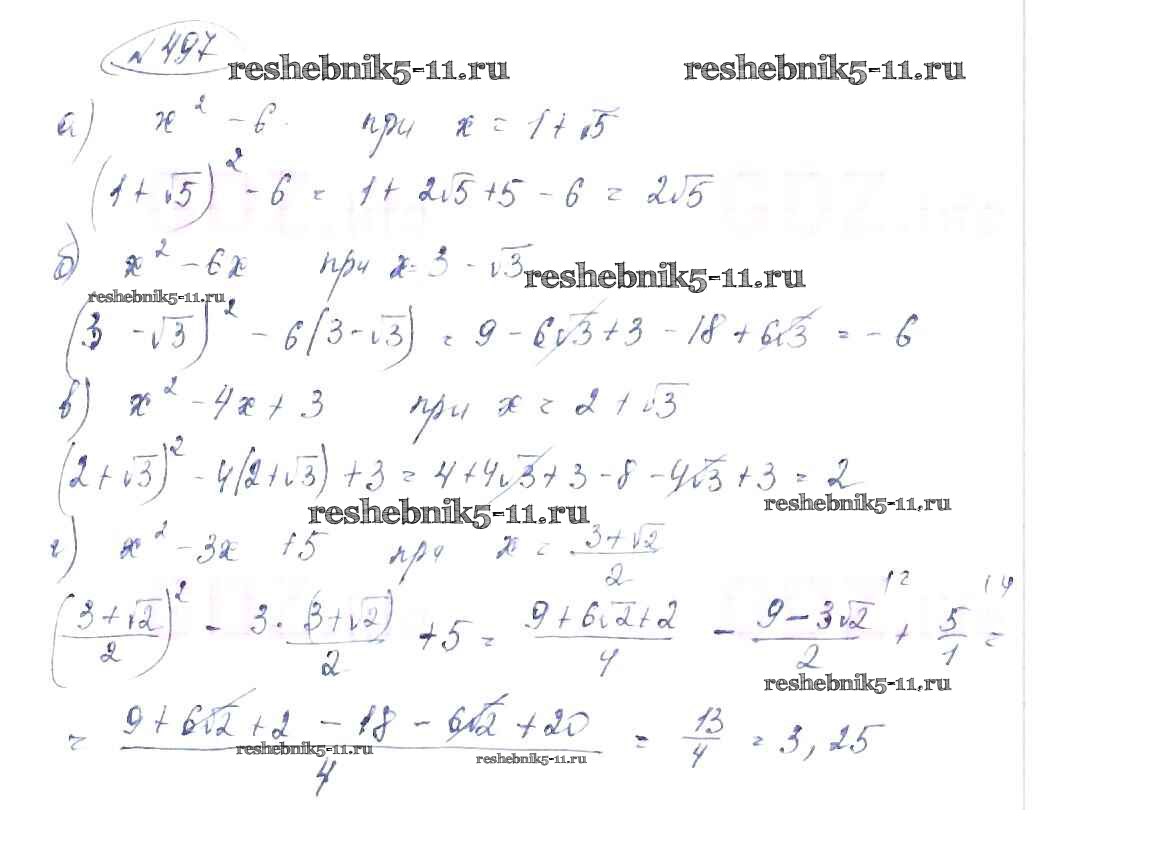 № 497
reshebnik5-11.ru reshebnik5-11.ru
а) x² - 6 при x = 1 + √5
(1 + √5)² - 6 = 1 + 2√5 + 5 - 6 = 2√5
б) x² - 6x при x = 3 - √3
reshebnik5-11.ru
reshebnik5-11.ru
(3 - √3)² - 6(3 - √3) = 9 - 6√3 + 3 - 18 + 6√3 = - 6
в) x² - 4x + 3 при x = 2 + √3
(2 + √3)² - 4(2 + √3) + 3 = 4 + 4√3 + 3 - 8 - 4√3 + 3 = 2
reshebnik5-11.ru
reshebnik5-11.ru
г) x² - 3x + 5 при x = (3 + √2)/2
((3 + √2)/2)² - 3 · (3 + √2)/2 + 5 = (9 + 6√2 + 2)/4 - (9 - 3√2)/2 |2 + 5/1 |4 =
reshebnik5-11.ru
= (9 + 6√2 + 2 - 18 - 6√2 + 20)/4 = 13/4 = 3,25
reshebnik5-11.ru
reshebnik5-11.ru